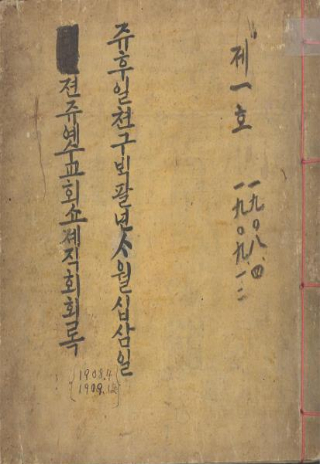 제一호
一九〇八.四
一九〇九.一二
쥬후일쳔구빅팔년ᄉ월십삼일
젼쥬예수교회쇼졔직회회록
1908.4
1909.12